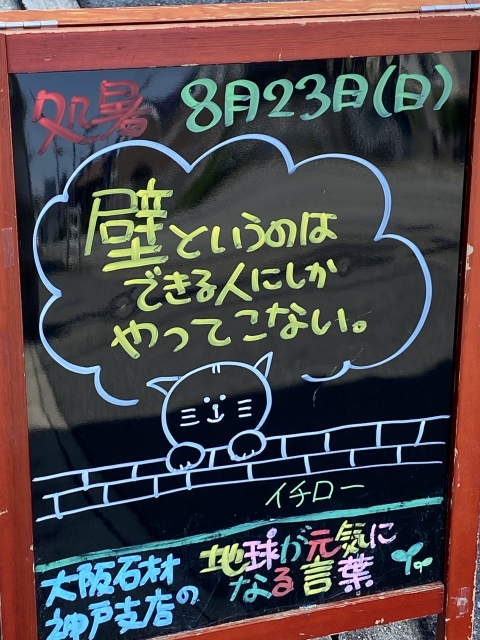 処暑 8月23日(日)
壁というのは
できる人にしか
やってこない。
イチロー
大阪石材
神戸支店の
地球が元気に
なる言葉